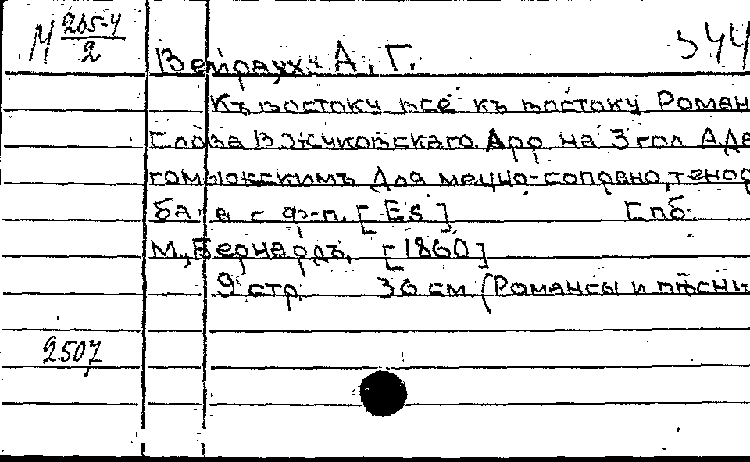 М 265-4/2
544
Вейраух, А. Г.
Къ востоку всё къ востоку Роман
Слова В. Жуковскаго. Арр. на 3 гол. А. Да
гомыжскимъ Для меццо-сопрано, тенор
ба и с ф-п. [Es] Спб.
М. Бернардъ, [1860]
9 стр 36 см (Романсы и пѣсни
2507